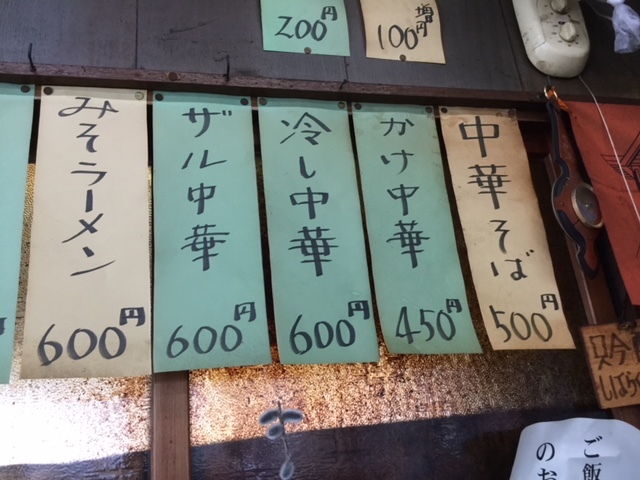 200円
増
100円
中華そば
500円
かけ中華
450円
冷し中華
600円
ザル中華
600円
みそラーメン
600円
円
ご飯
のお